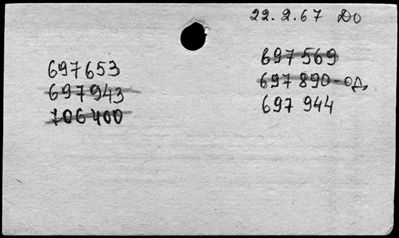 22.2.67 До
697653
697943
106400
697569
697890-од.
697944